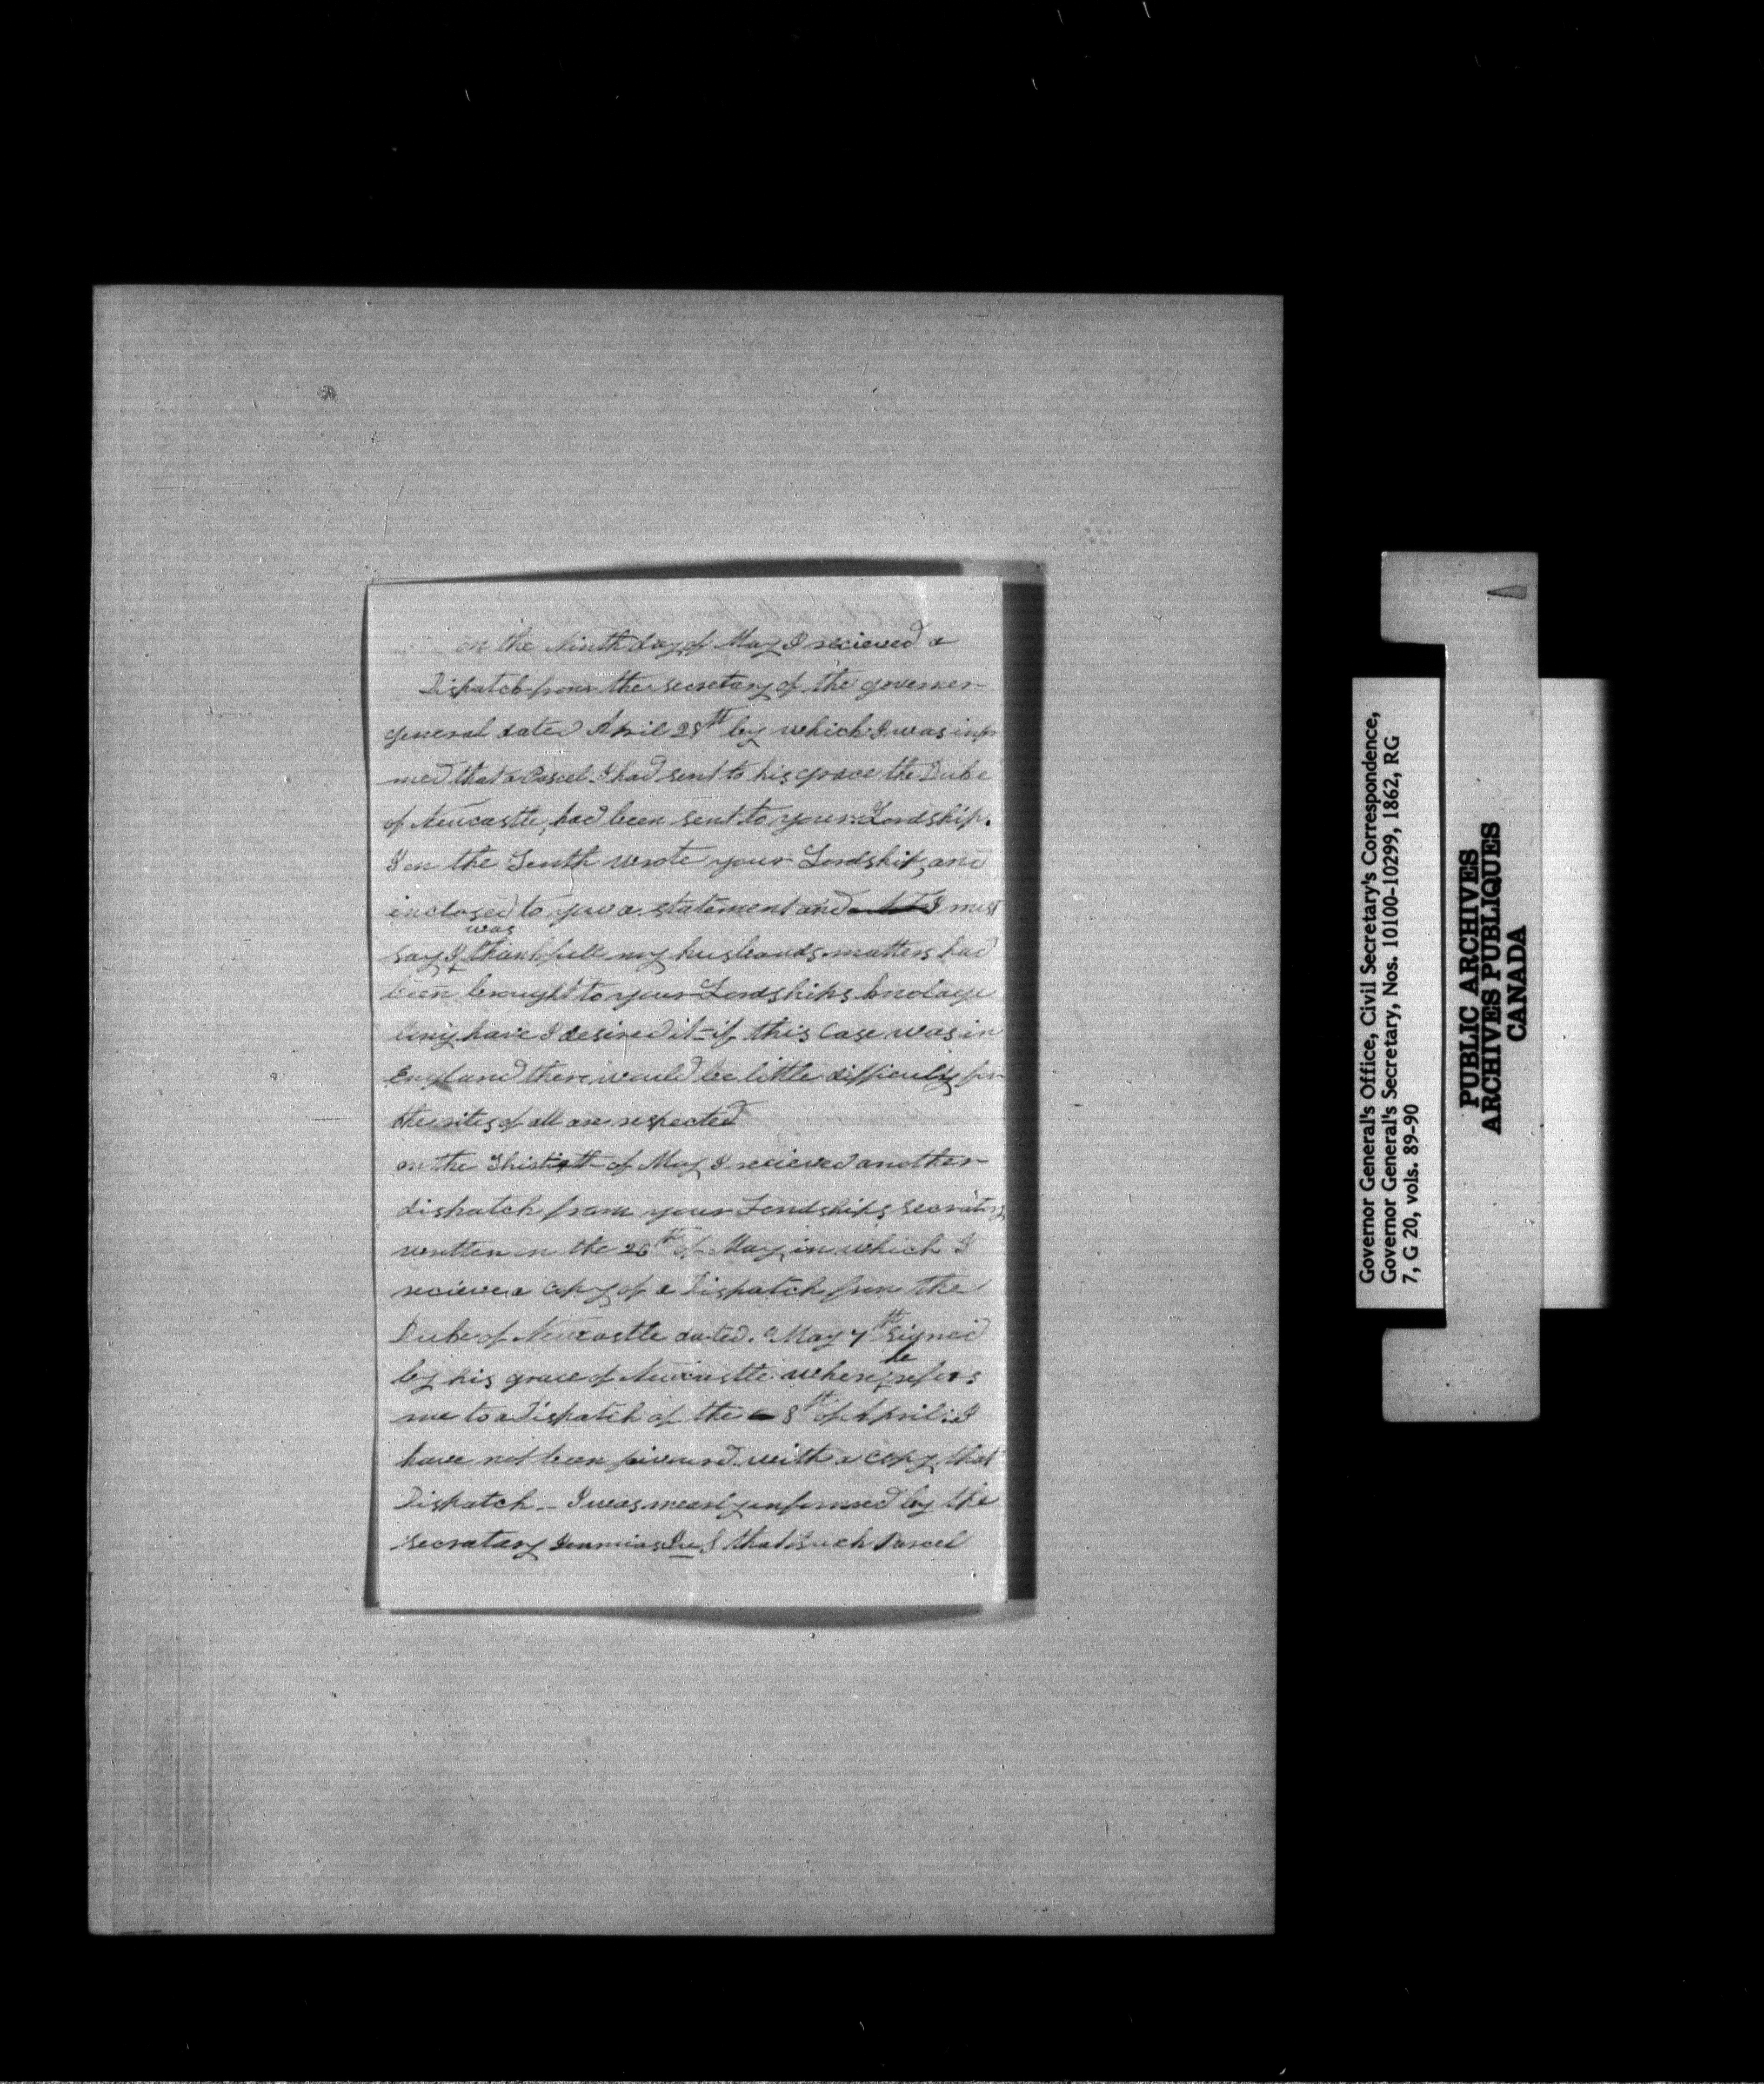 on the Ninth day of May I recieved a
Dispatch from the secretary of the governer
general dated April 28th by which I was infor
med that a Parcel I had sent to his grace the Duke
of Newcastle, had been sent to your Lordship.
I on the Tenth wrote your Lordship, and
inclosed to you a statement and I must
was
say I thankfull my husbands matters had
been brought to your Lordships knolage
long have I desired it - if this Case was in
England there would be little difficulty for
the rites of all are respected
on the Thirtieth of May I recieved another
dispatch from your Lordships secratory
written on the 26th of May, in which I
recieve a copy of a Dispatch from the
Duke of Newcastle dated. May 7th signed
he
by his grace of Newcastle where refers
me to a Dispatch of the 8th of April: I
have not been favoured with a copy that
Dispatch - I was mearly informed by the
secratary that such Parcel
Governor General's Office, Civil Secretary's Correspondence,
Governor General's Secretary, Nos. 10100-10299, 1862, RG
7, G 20, vols. 89-90
PUBLIC ARCHIVES
ARCHIVES PUBLIQUES
CANADA